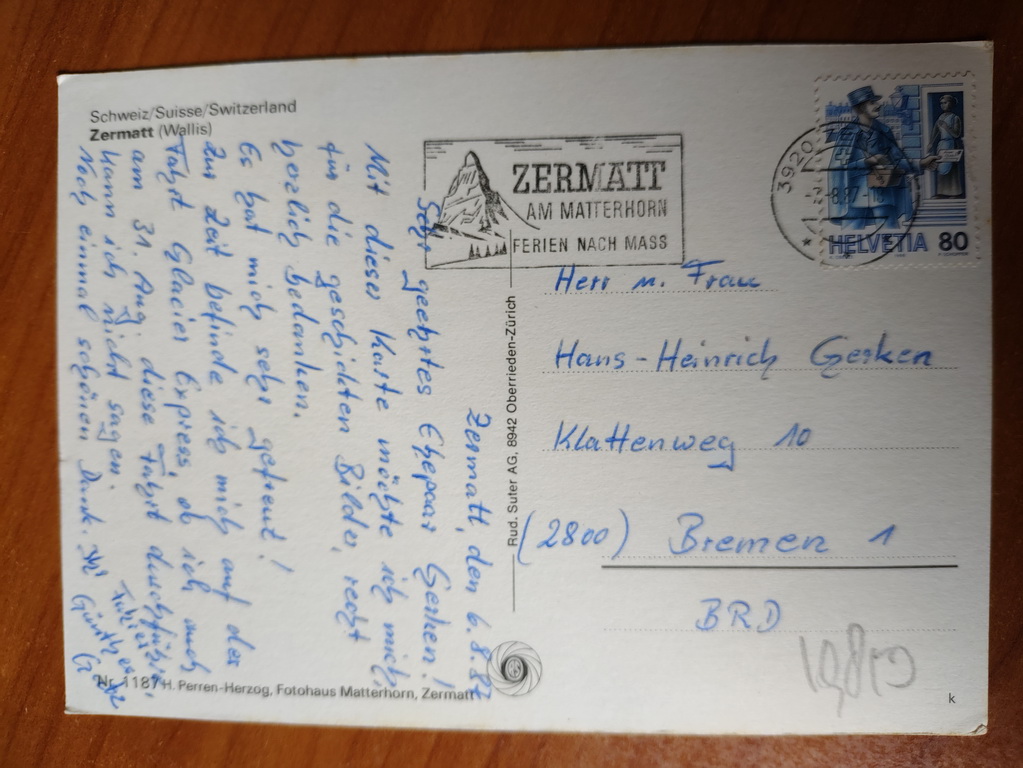 Schweiz/Suisse/Switzerland
Zermatt (Wallis)
ZERMATT
AM MATTERHORN
FERIEN NACH MASS
3920
-8.87-
HELVETIA 80
Zermatt, den 6.8.87
Sehr geehrtes Ehepaar Gerken!
Mit dieser Karte möchte ich mich
für die geschickten Bilder, recht
herzlich bedanken.
Es hat mich sehr gefreut!
Zur Zeit befinde ich mich auf der
Fahrt Glacier Express, ob ich auch
am 31. Aug. diese Fahrt durchführe,
kann ich nicht sagen.
Noch einmal schönen Dank.
Günther
Herr u. Frau
Hans-Heinrich Gerken
Klattenweg 10
(2800) Bremen 1
BRD
Rud. Suter AG, 8942 Oberrieden-Zürich
Nr. 1187 H. Perren-Herzog, Fotohaus Matterhorn, Zermatt
k